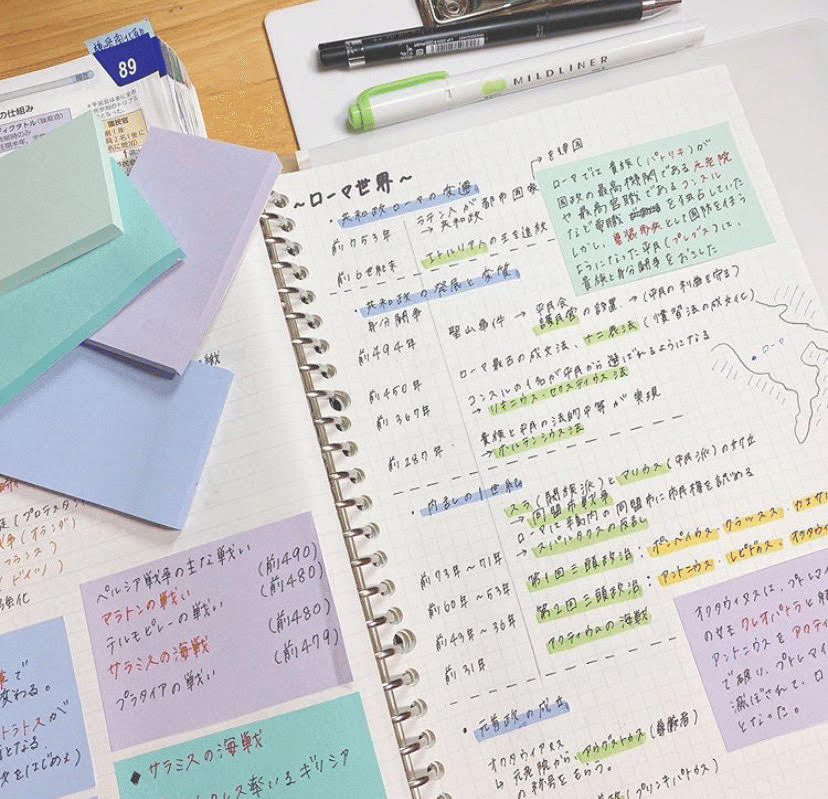 89
の仕組み
MILDLINER
~ローマ世界~
・共和政ローマの変遷
を建国
前753年 ラテン人が都市国家
→ 共和政
前6世紀末 エトルリア人の王を追放
ローマでは貴族(パトリキ)が
国政の最高機関である元老院
や最高官職であるコンスル
など要職を独占していた
しかし、重装歩兵として国防を担う
ようになった平民(プレブス)は、
貴族と身分闘争をおこした
・共和政の発展と変質
身分闘争
前494年 聖山事件 → 平民会
護民官の設置 → (平民の利益を守る)
前450年 ローマ最古の成文法、十二表法(慣習法の成文化)
前367年 コンスルの1名が平民から選ばれるようになる
→ リキニウス・セクスティウス法
前287年 貴族と平民の法的平等が実現
→ ホルテンシウス法
・ローマ
・内乱の1世紀
スラ(閥族派)とマリウス(平民派)の対立
→ 同盟市戦争
ローマは半島内の同盟市に市民権を認める
前73年~71年 → スパルタクスの反乱
前60年~53年 第1回三頭政治:ポンペイウス クラッスス カエサ
前43年~36年 第2回三頭政治:アントニウス、レピドゥス、オクタウ
前31年 アクティウムの海戦
オクタウィアヌスは、プトレマイ
の女王クレオパトラと
アントニウスをアクティ
で破り、プトレマイ
滅ぼされて、ロ
となった。
・元首政の成立
オクタウィアヌス
↳ 元老院から、アウグストゥス(尊厳者)
の称号をもらう。
政(プリンキパトゥス)
ペルシア戦争の主な戦い
マラトンの戦い (前490)
テルモピレーの戦い (前480)
サラミスの海戦 (前480)
プラタイアの戦い (前479)
◆サラミスの海戦
クレス率いるギリシア
(プロテスタン
(オランダ)
フランス
ドイツ)
強化
で
変わる。
トラトスが
となる
をはじめる